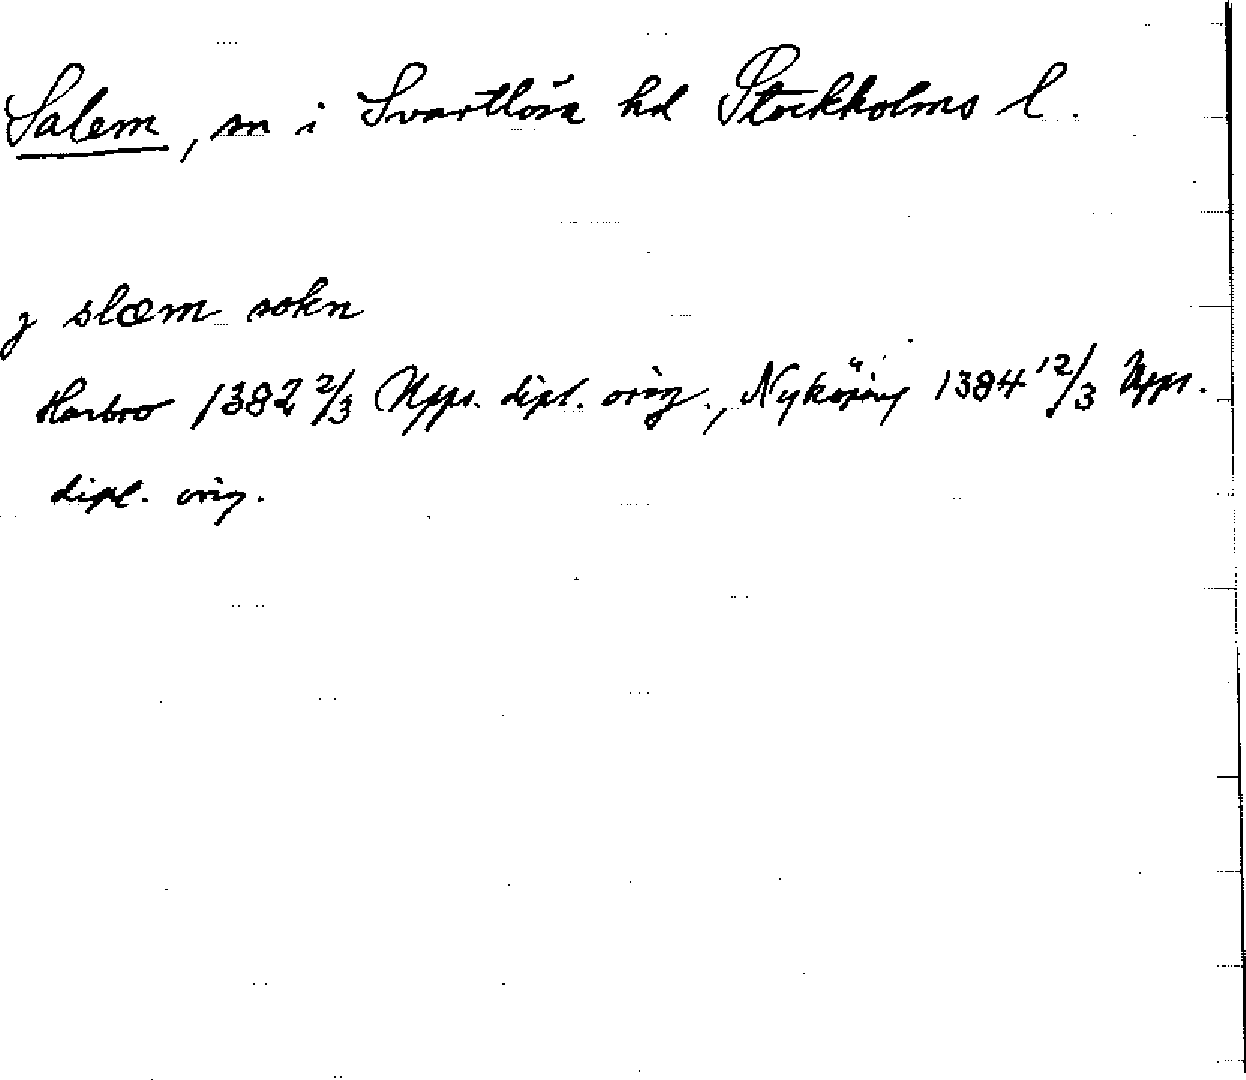 Salem, sn i Svartlösa hd Stockholms l.
j slæm sokn
Harbro 1382 2/3 Upps. dipl. orig., Nyköping 1384 12/3 Upps.
dipl. orig.